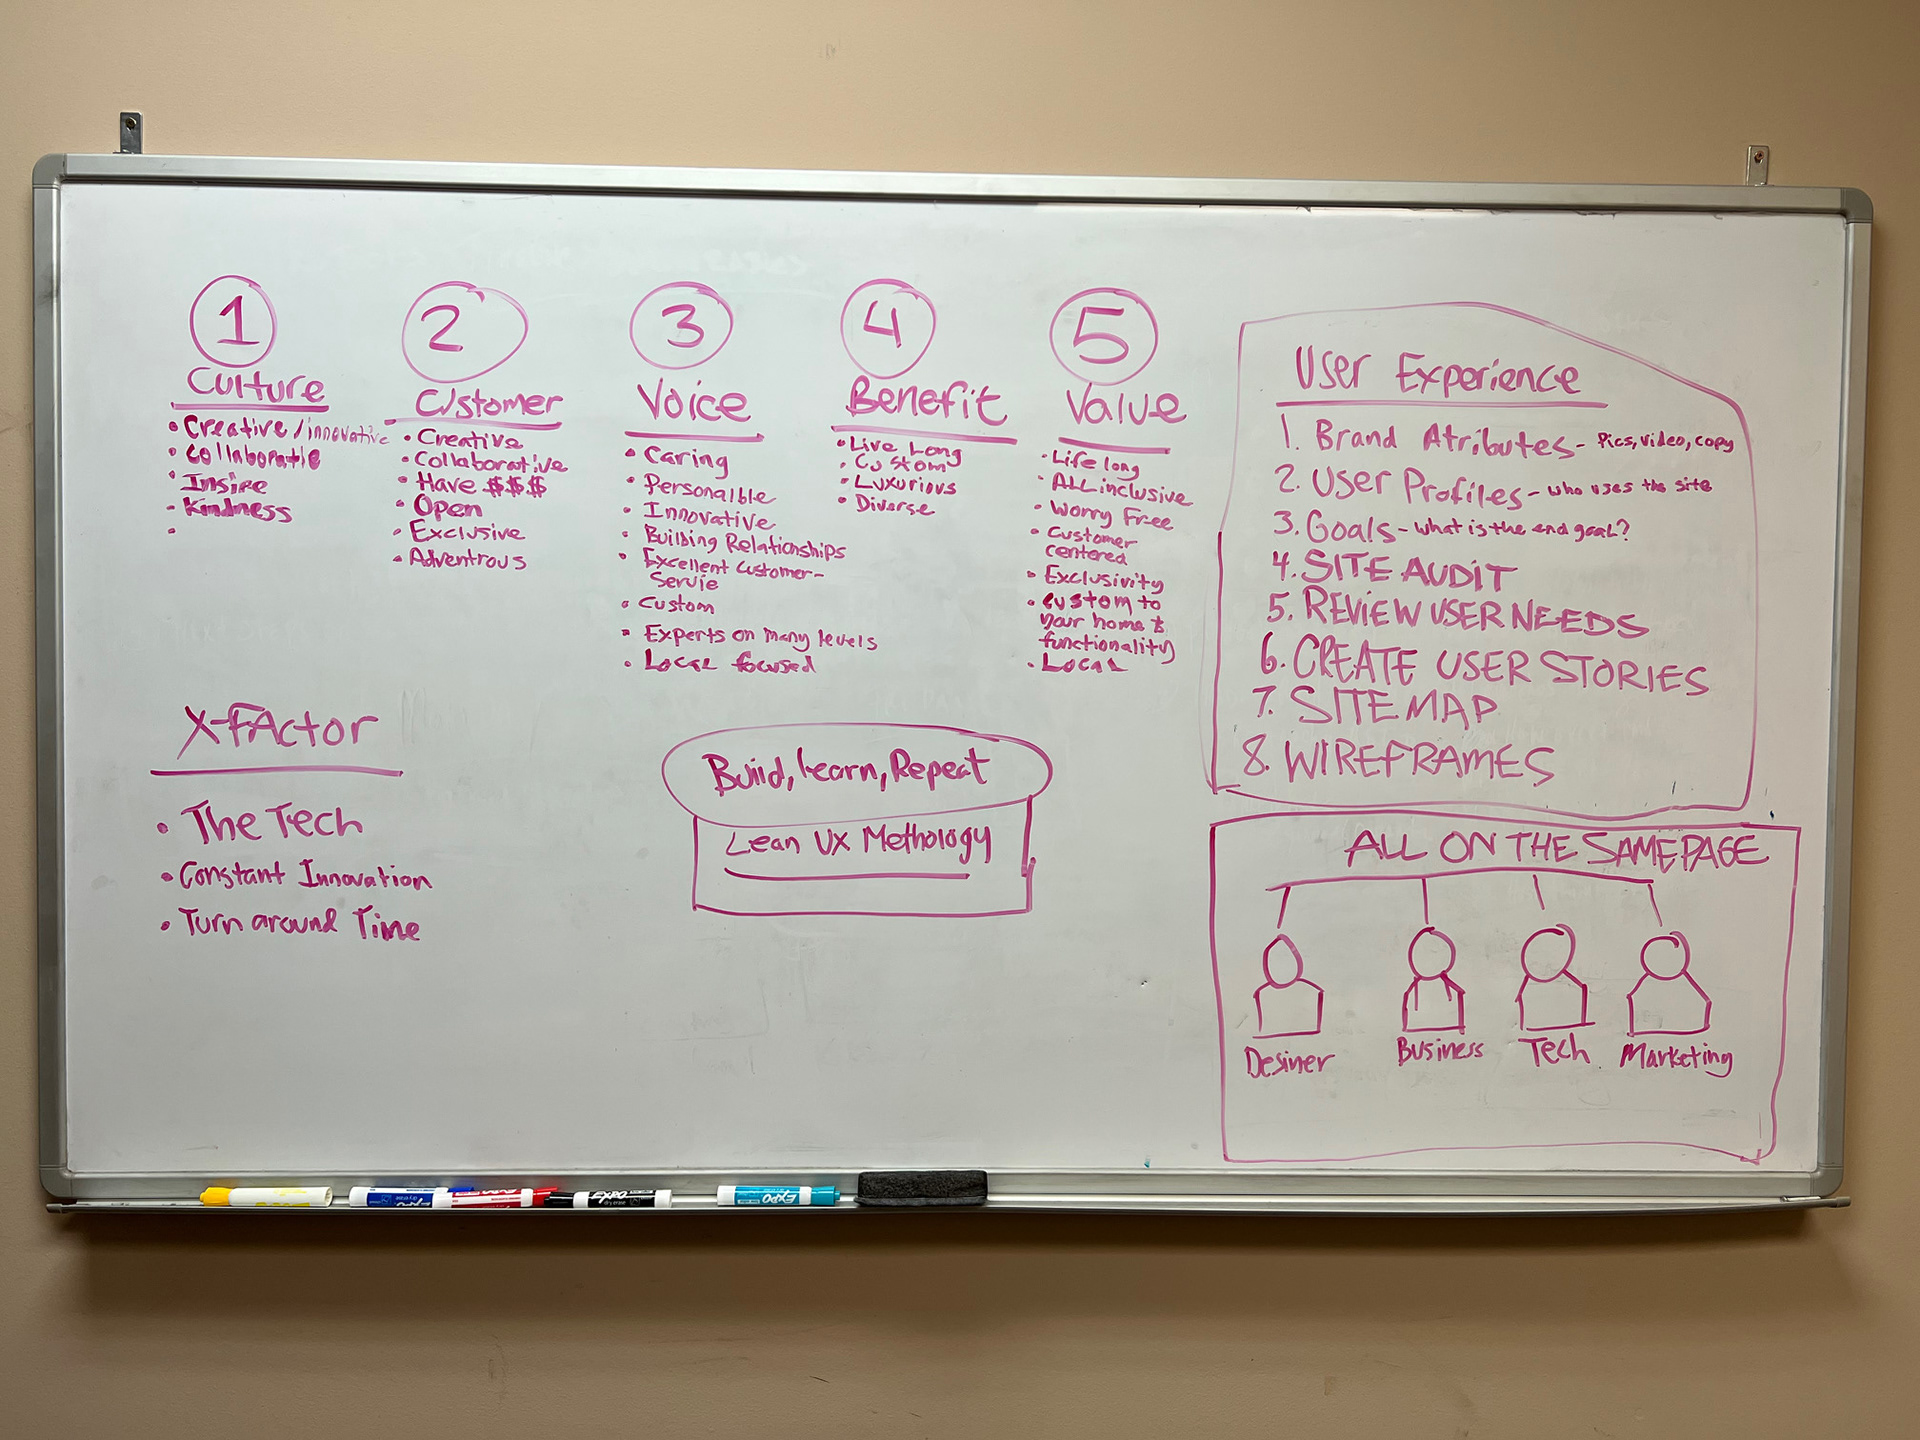 1
Culture
• Creative/innovative
• Collaboratie
• Insire
• Kindness
•
2
Customer
• Creative
• Collaborative
• Have $$$
• Open
• Exclusive
• Adventrous
3
Voice
• Caring
• Personalble
• Innovative
• Building Relationships
• Excellent Customer-
Servie
• Custom
• Experts on many levels
• Local focused
4
Benefit
• Live Long
• Custom
• Luxurious
• Diverse
5
Value
• Life long
• ALL inclusive
• Worry Free
• Customer
centered
• Exclusivity
• custom to
your home &
functionality
• Local
X-FActor
• The Tech
• Constant Innovation
• Turn around Time
Build, learn, Repeat
Lean UX Methology
User Experience
1. Brand Atributes - Pics, video, copy
2. User Profiles - who uses the site
3. Goals - what is the end goal?
4. SITE AUDIT
5. REVIEW USER NEEDS
6. CREATE USER STORIES
7. SITE MAP
8. WIREFRAMES
ALL ON THE SAME PAGE
Desiner Business Tech Marketing
EXPO